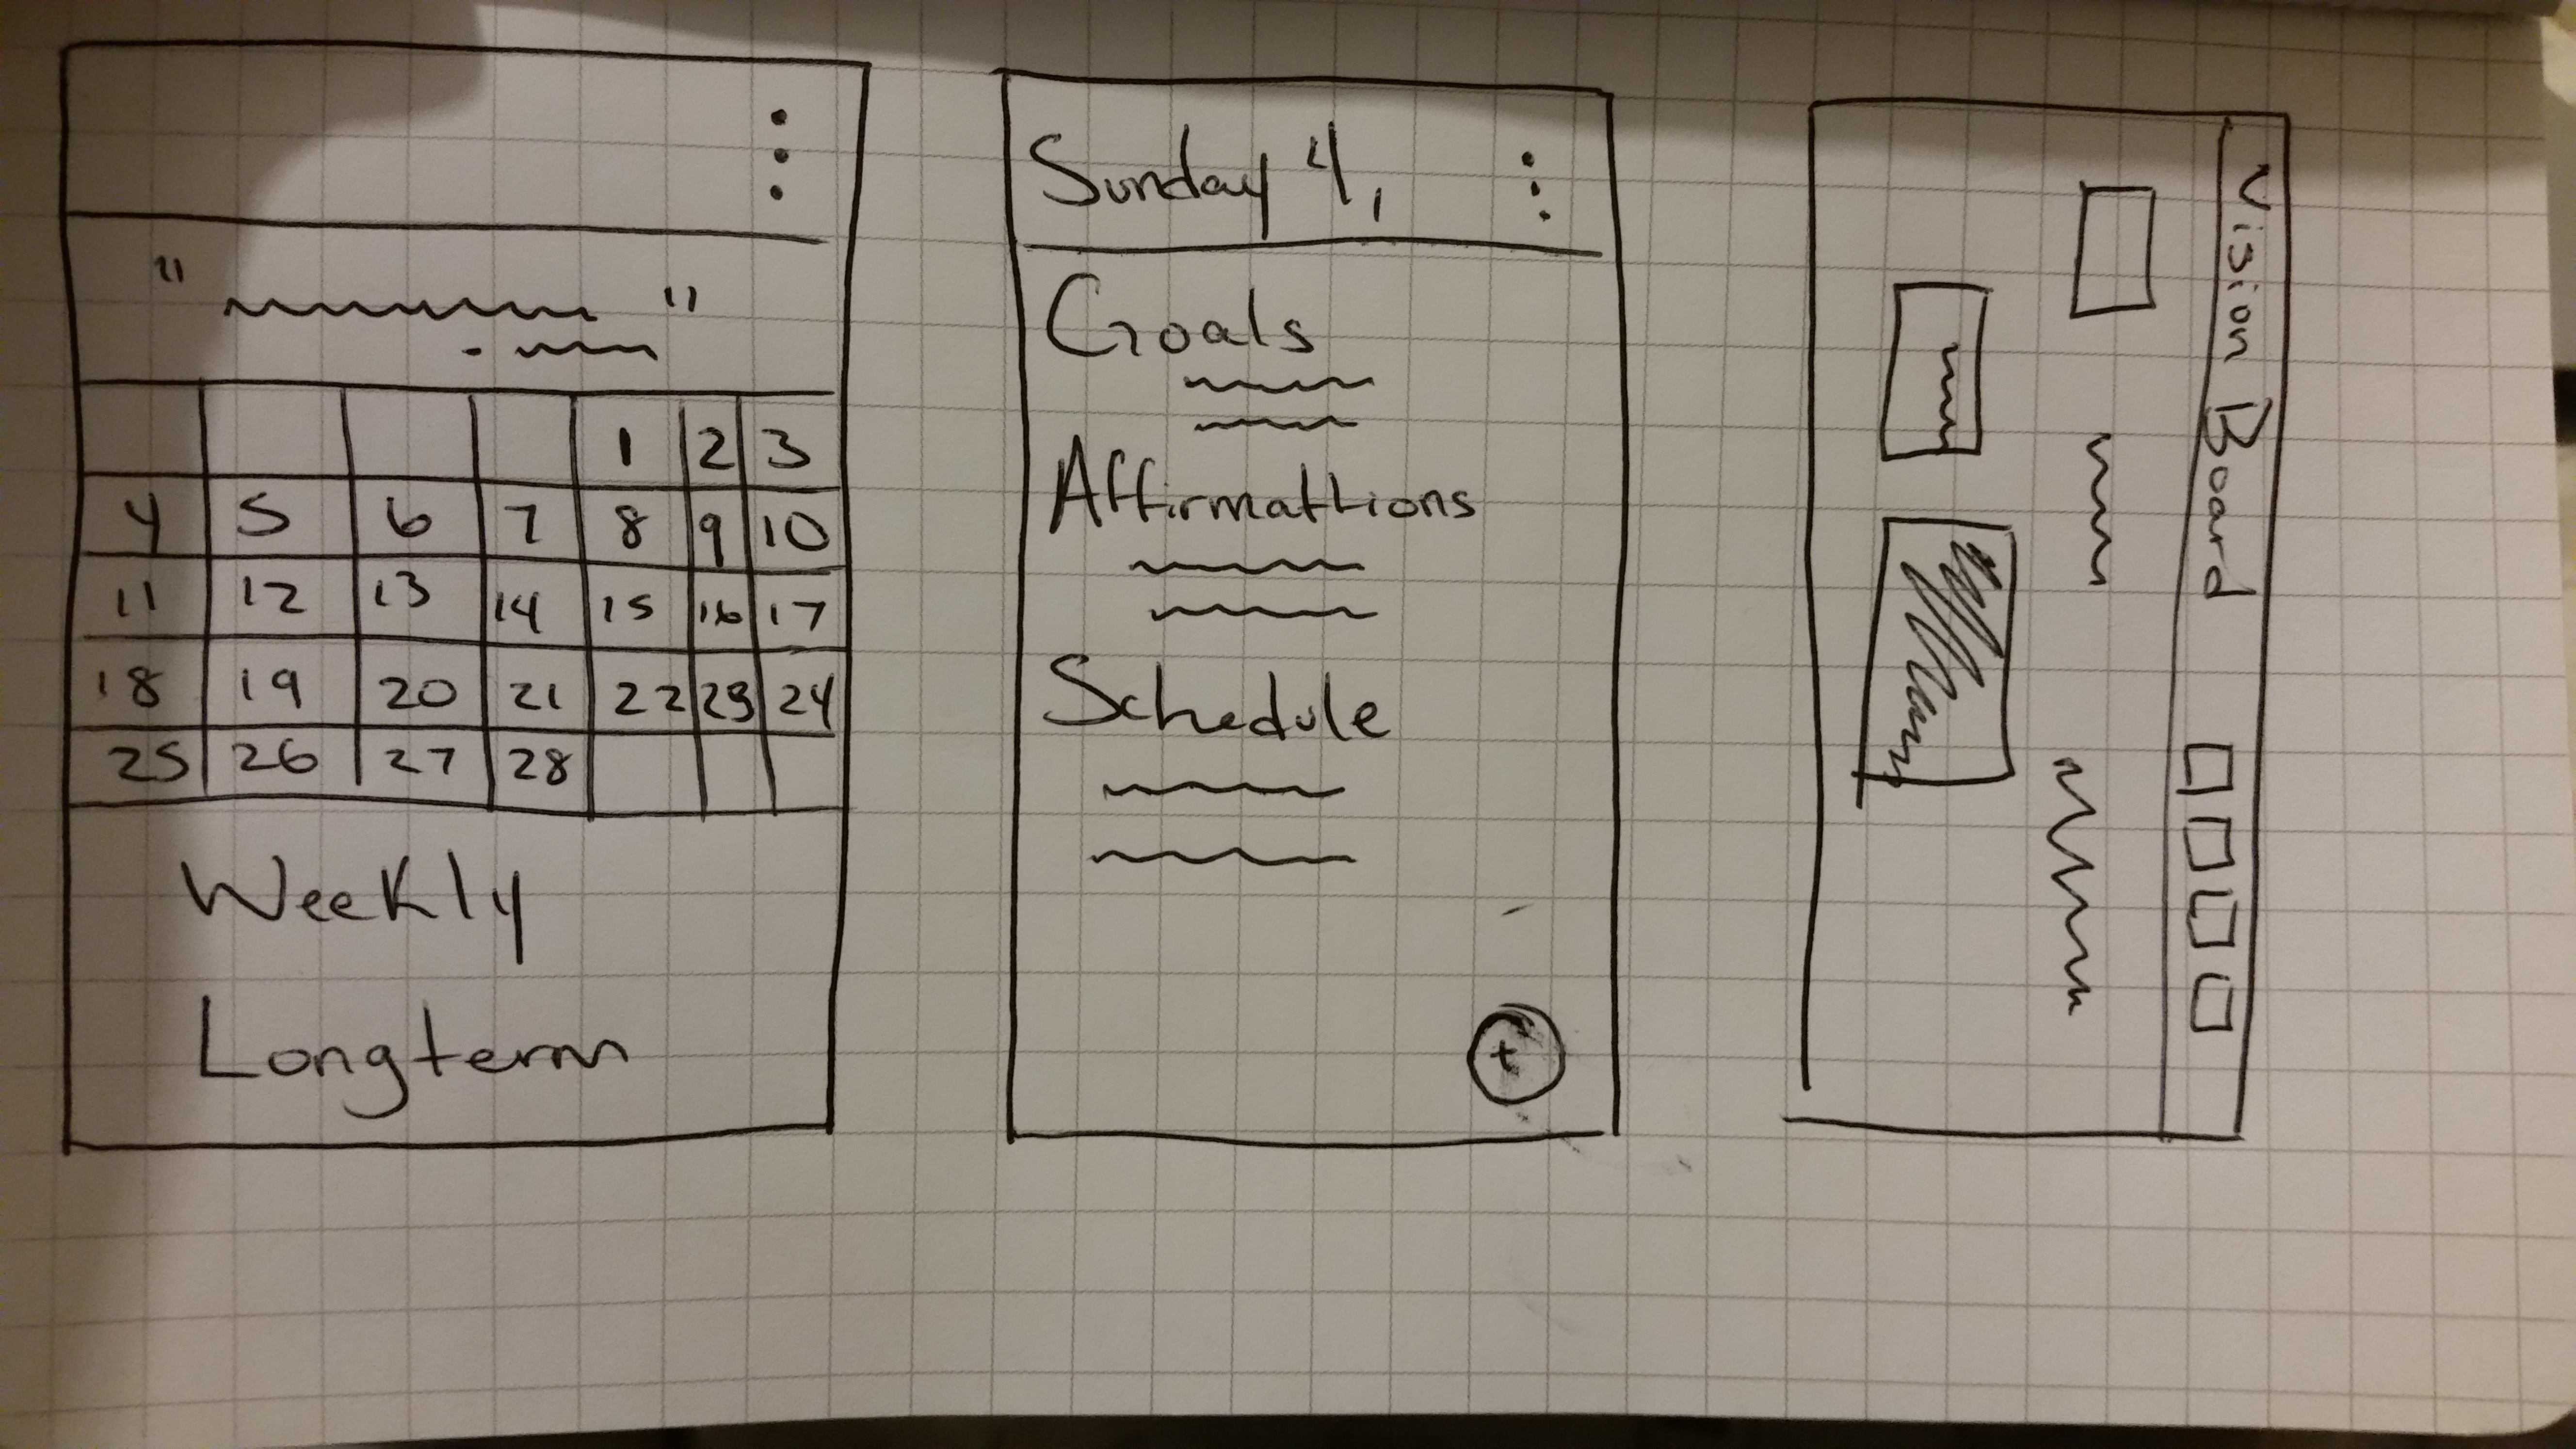 " "
1 2 3
4 5 6 7 8 9 10
11 12 13 14 15 16 17
18 19 20 21 22 23 24
25 26 27 28
Weekly
Longterm
Sunday 4,
Goals
Affirmattions
Schedule
+
Vision Board